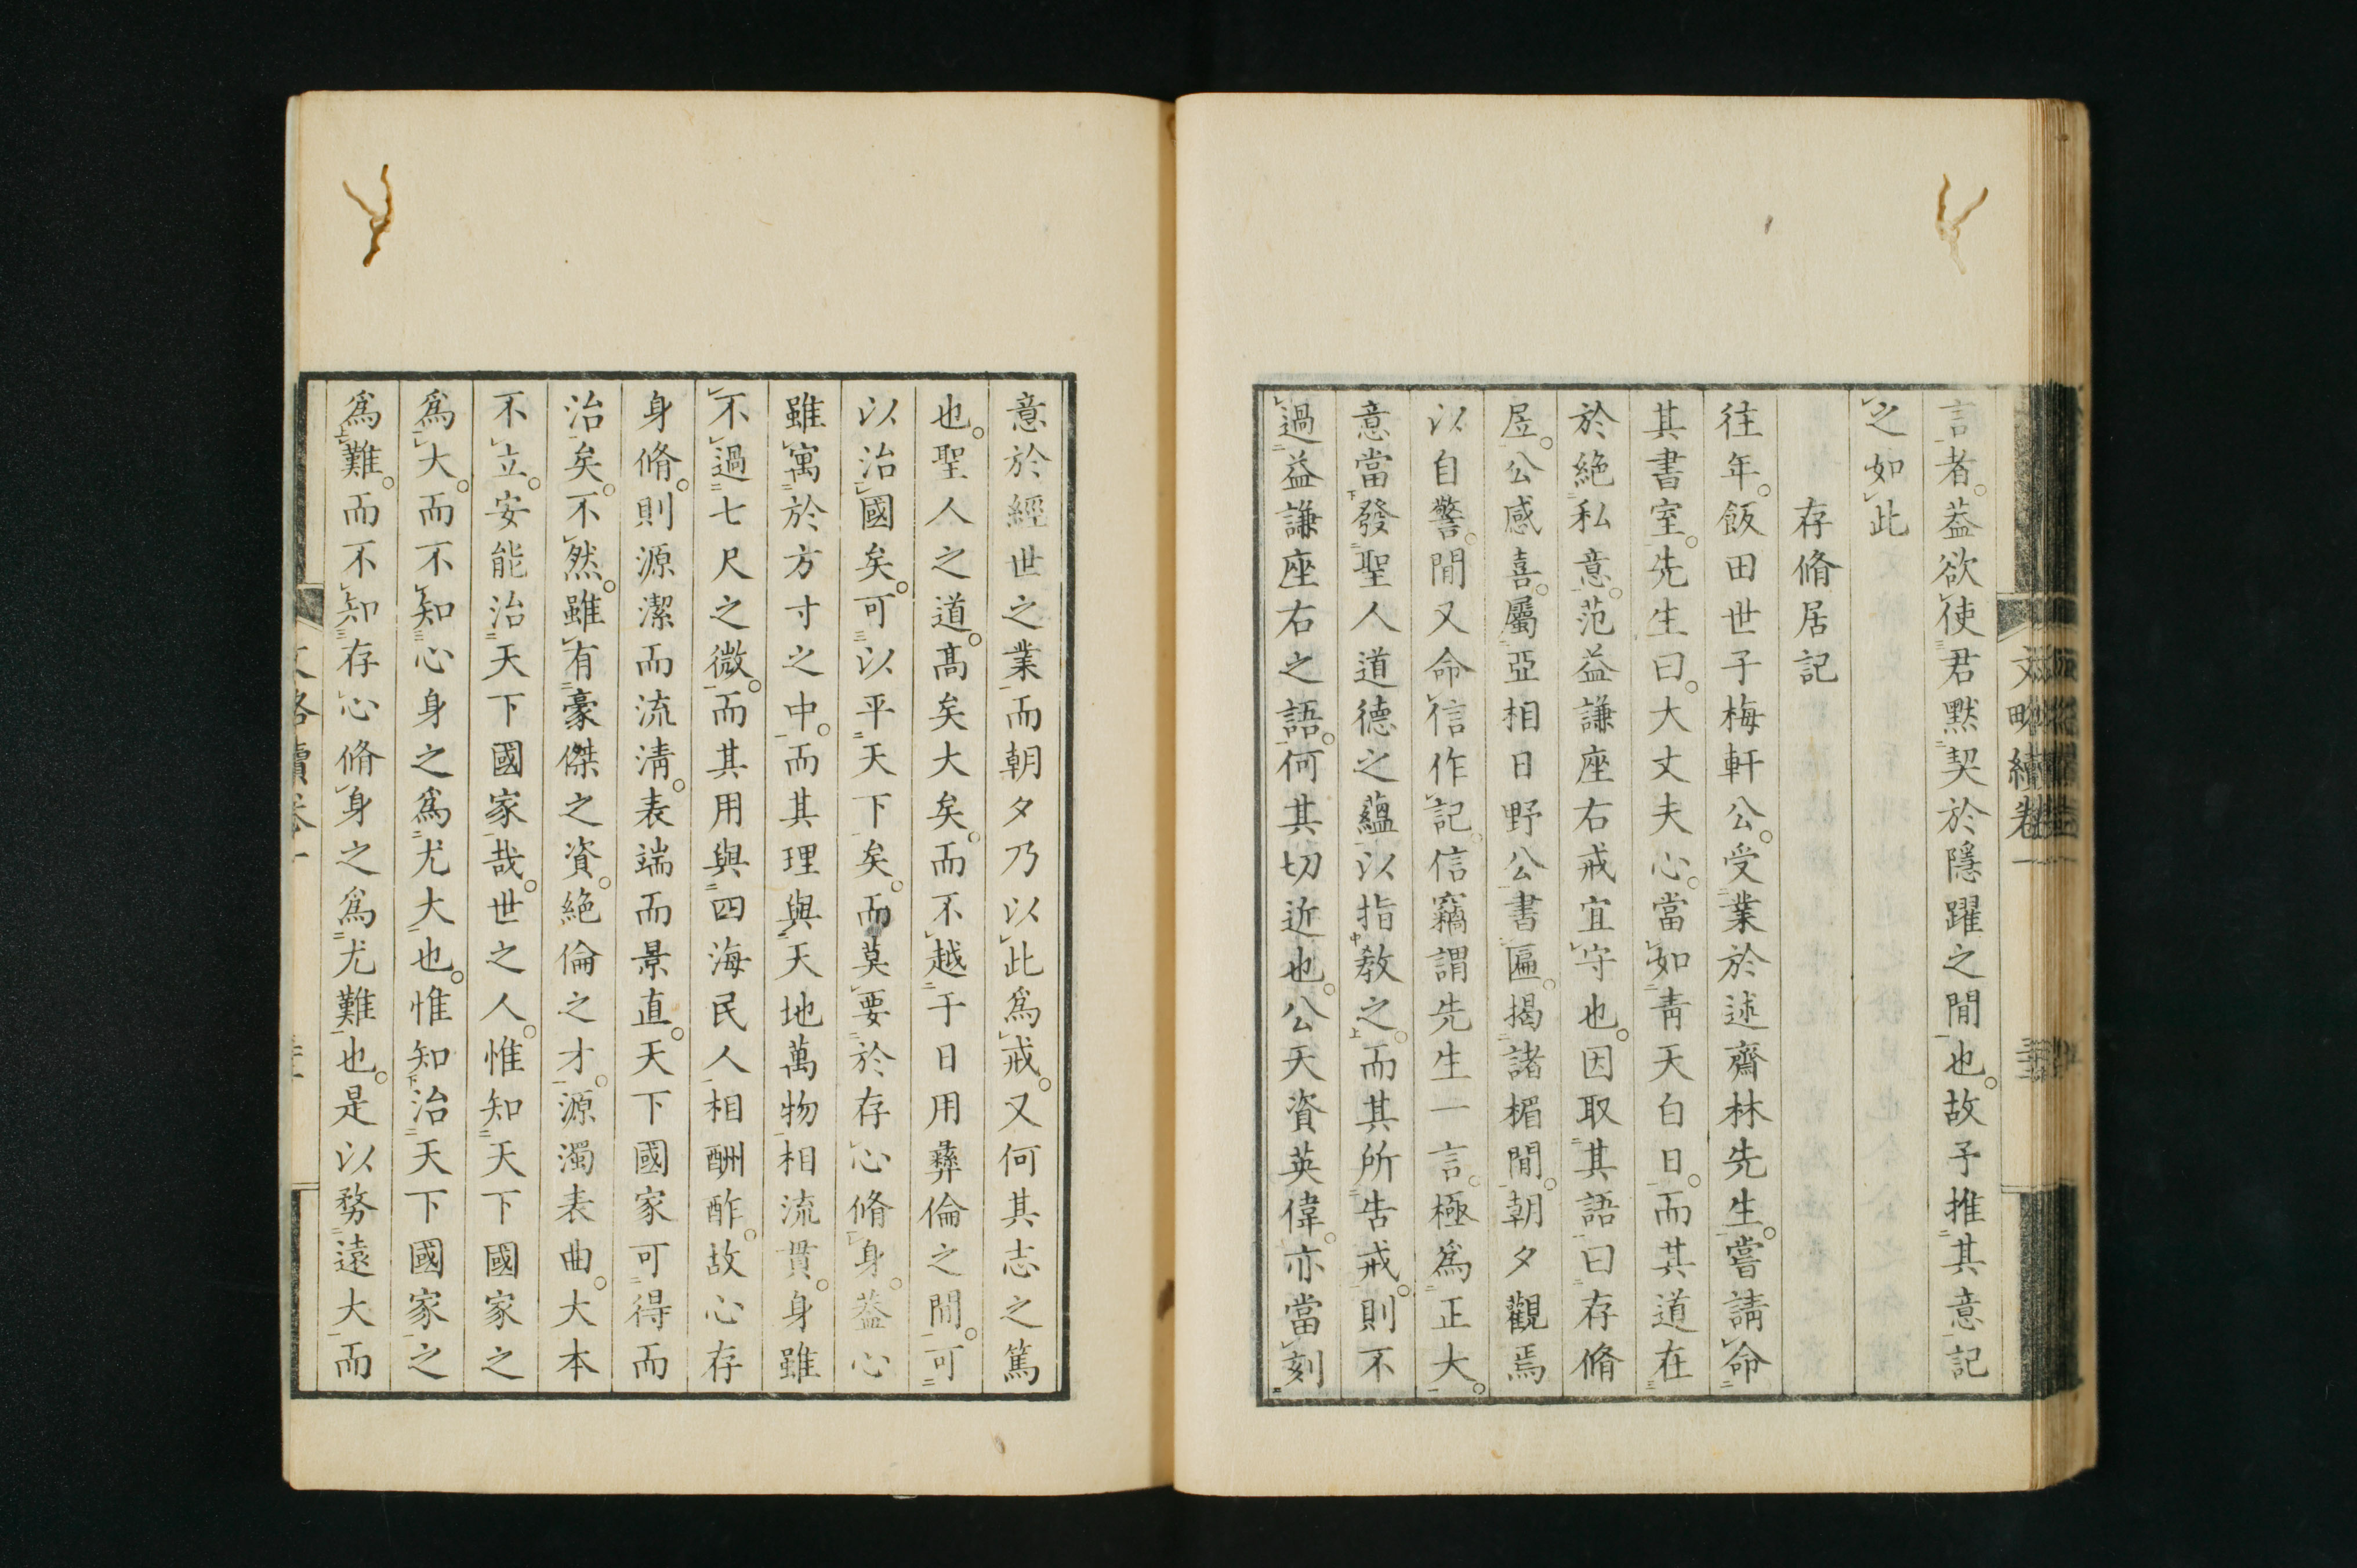 言者。葢欲使君黙契於隱躍之閒也。故予推其意記
之如此
存脩居記
往年。飯田世子梅軒公。受業於述齋林先生。嘗請命
其書室。先生曰。大丈夫心。當如靑天白日。而其道在
於絶私意。范益謙座右戒宜守也。因取其語曰存脩
㞐。公感喜。屬亞相日野公書匾。揭諸楣閒。朝夕觀焉
以自警。閒又命信作記。信竊謂先生一言。極爲正大。
意當發聖人道德之蘊以指教之。而其所告戒。則不
過益謙座右之語。何其切近也。公天資英偉。亦當刻
意於經世之業而朝夕乃以此爲戒。又何其志之篤
也。聖人之道。髙矣大矣。而不越于日用彝倫之閒。可
以治國矣。可以平天下矣。而莫要於存心脩身。葢心
雖寓於方寸之中。而其理與天地萬物相流貫。身雖
不過七尺之微。而其用與四海民人相酬酢。故心存
身脩。則源潔而流淸。表端而景直。天下國家可得而
治矣。不然。雖有豪傑之資。絶倫之才。源濁表曲。大本
不立。安能治天下國家哉。世之人。惟知天下國家之
爲大。而不知心身之爲尤大也。惟知治天下國家之
爲難。而不知存心脩身之爲尤難也。是以務遠大而
文略續卷一